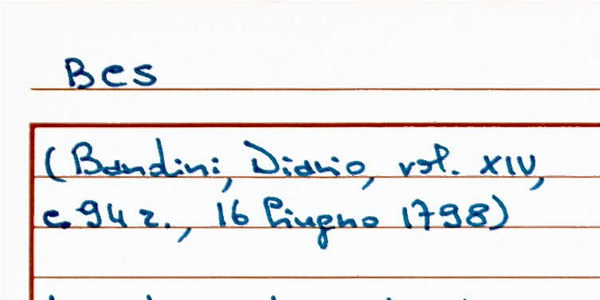 Bes
(Bandini, Diario, vol. XIV,
c. 94 r., 16 Giugno 1798)